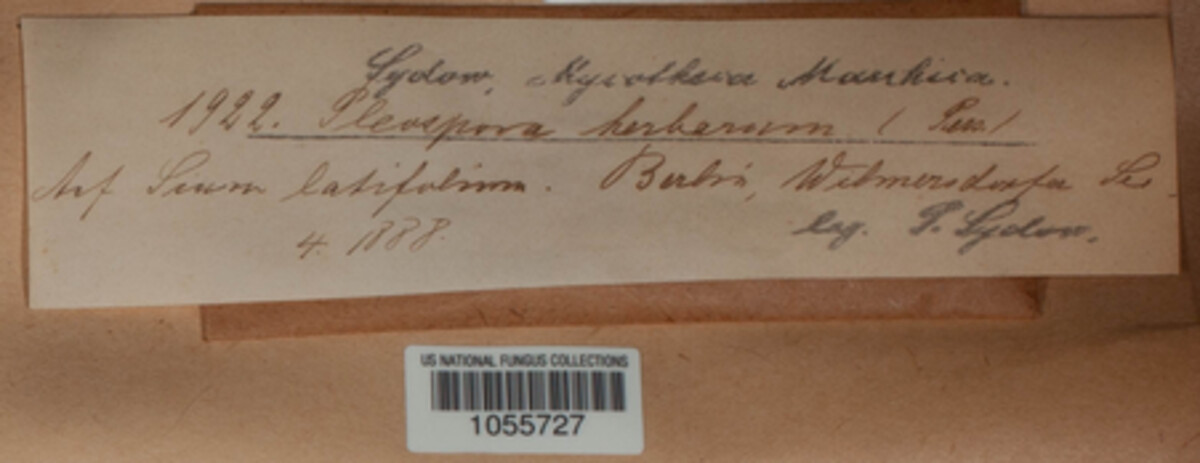 Sydow, Mycotheca Marchica.
1922. Pleospora herbarum (Pers.)
Auf Sium latifolium. Berlin, Wilmersdorfer See.
4. 1888.
leg. P. Sydow.
US NATIONAL FUNGUS COLLECTIONS
1055727